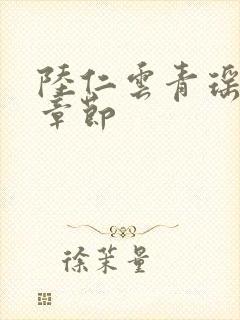 陸仁雲青瑶
章節
徐茉量